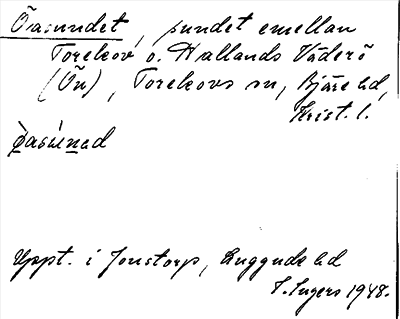 Öasundet, sundet emellan
Torekov o. Hallands Väderö
(Ön), Torekovs sn, Bjäre hd,
Krist. l.
Öasúnəd
Uppt. i Jonstorp, Luggude hd
I. Ingers 1948.